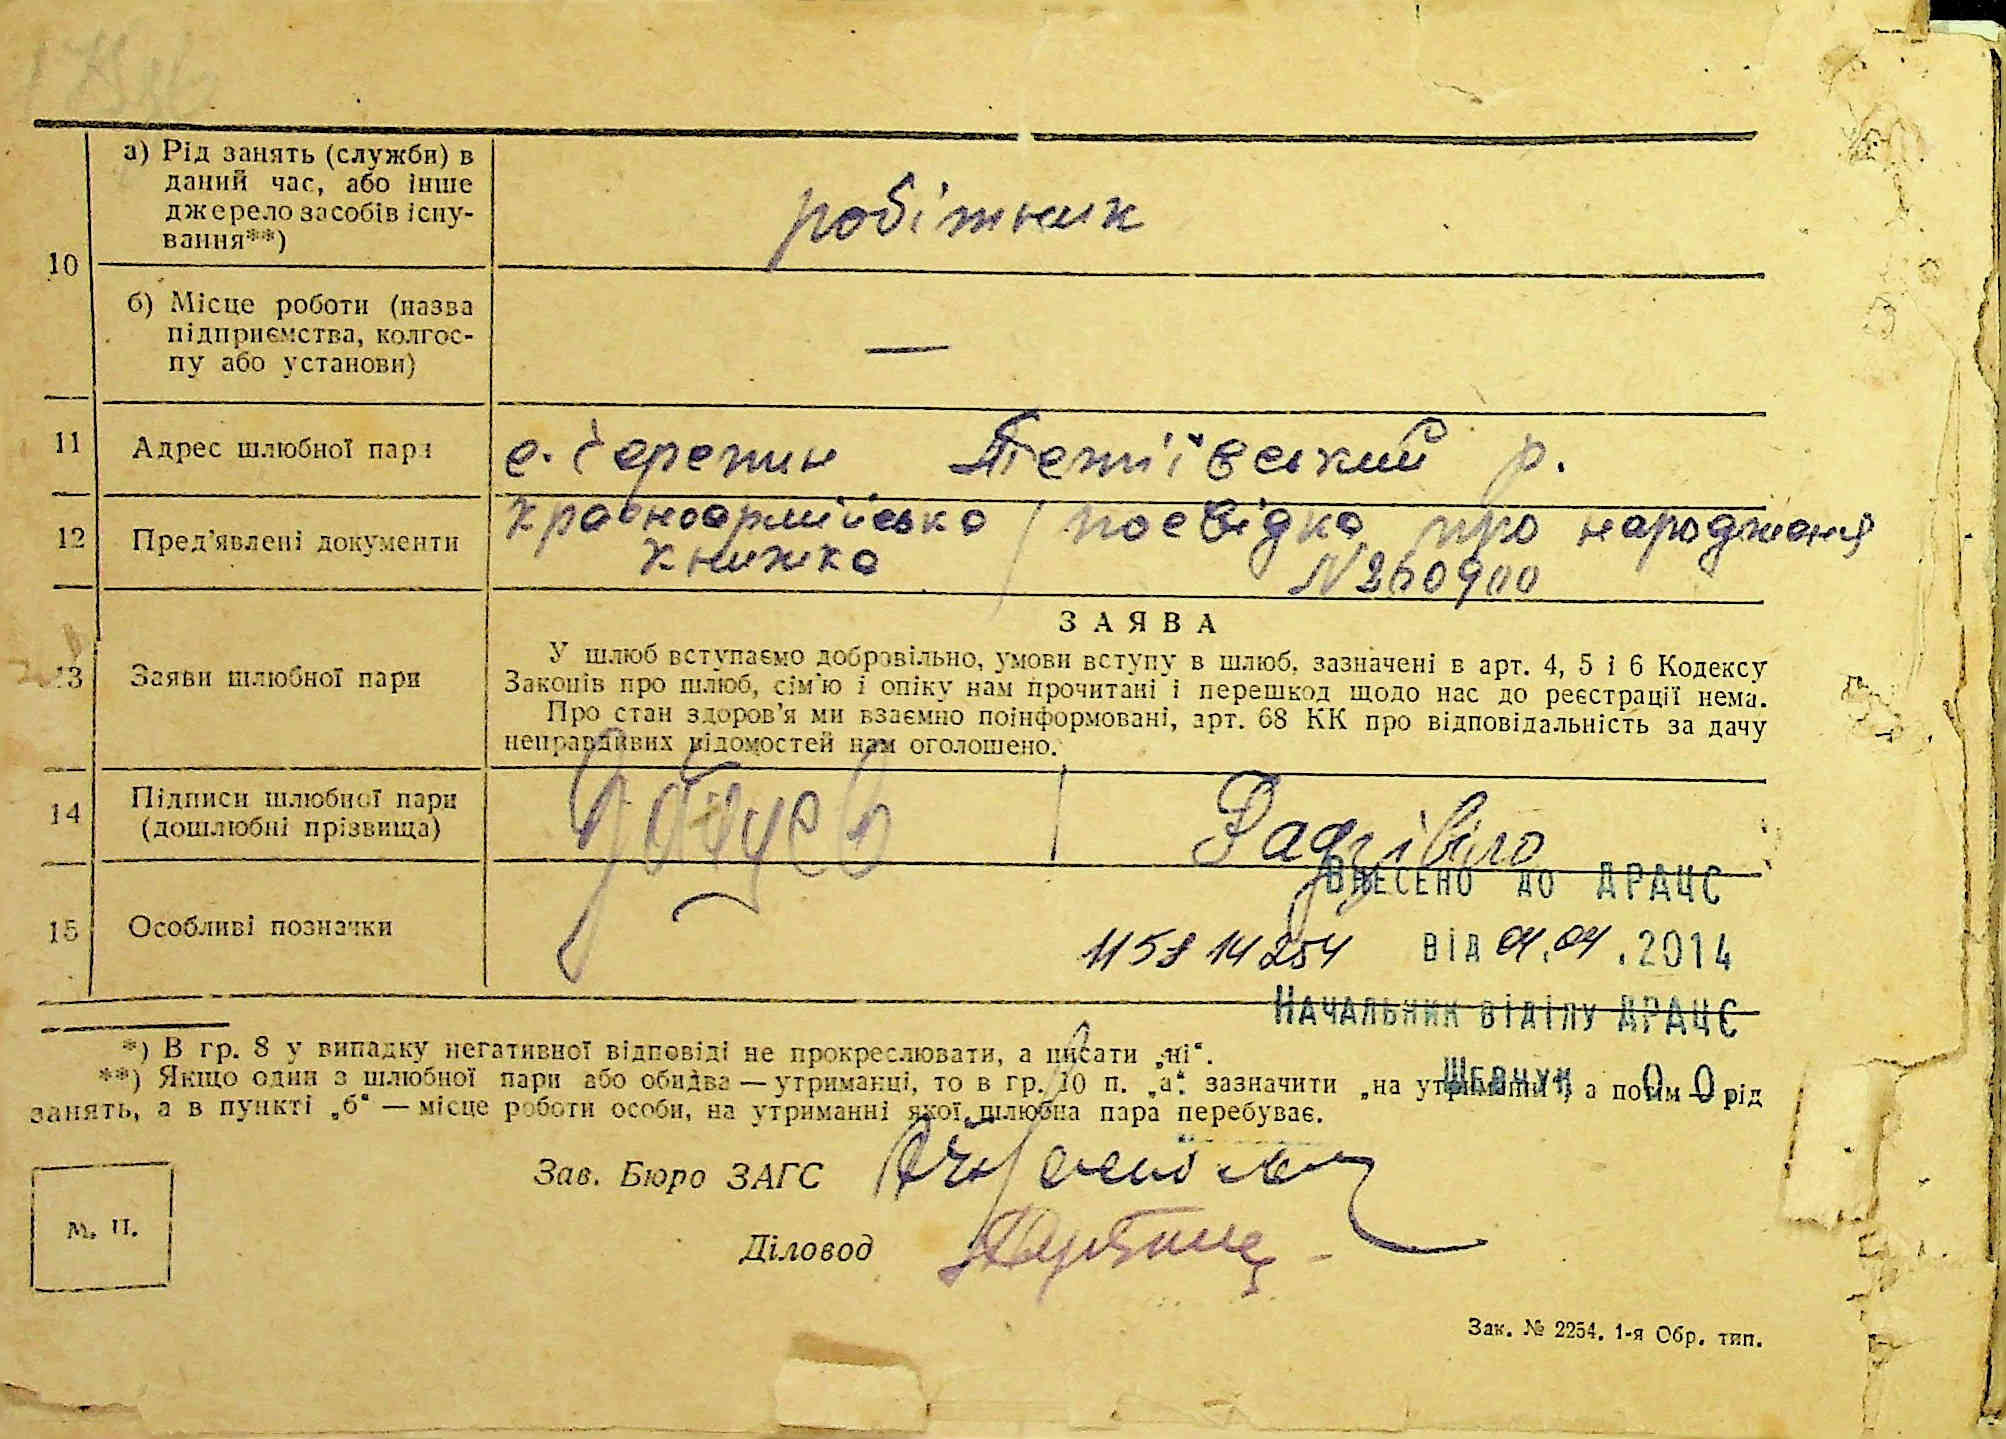 а) Рід занять (служби) в
даний час, або інше
джерело засобів існу-
вання**)
робітник
10
б) Місце роботи (назва
підприємства, колгос-
пу або установи)
—
11 Адрес шлюбної пари с. Черепин Тетіївський р.
12 Пред'явлені документи
красноармійська / посвідка про народження
книжка N 360900
ЗАЯВА
13 Заяви шлюбної пари
У шлюб вступаємо добровільно, умови вступу в шлюб, зазначені в арт. 4, 5 і 6 Кодексу
Законів про шлюб, сім'ю і опіку нам прочитані і перешкод щодо нас до реєстрації нема.
Про стан здоров'я ми взаємно поінформовані, арт. 68 КК про відповідальність за дачу
неправдивих відомостей нам оголошено.
14 Підписи шлюбної пари
(дошлюбні прізвища)
Радзівіло
Внесено до ДРАЦС
15 Особливі позначки
115814254 від 01.04.2014
Начальник відділу ДРАЦС
Шевчук О О
*) В гр. 8 у випадку негативної відповіді не прокреслювати, а писати „ні“.
**) Якщо один з шлюбної пари або обидва — утриманці, то в гр. 10 п. „а“ зазначити „на утриманні“, а потім — рід
занять, а в пункті „б“ — місце роботи особи, на утриманні якої шлюбна пара перебуває.
Зав. Бюро ЗАГС
М. П.
Діловод
Зак. № 2254. 1-я Обр. тип.